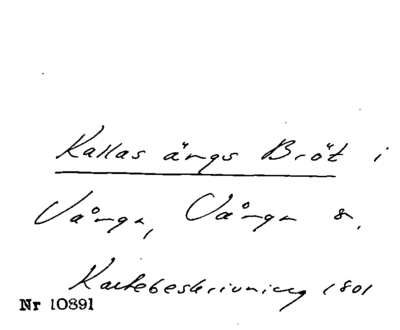 Kallas ängs Bröt i
Vånga, Vånga s.
Kartebeskrivning 1801
Nr 10891